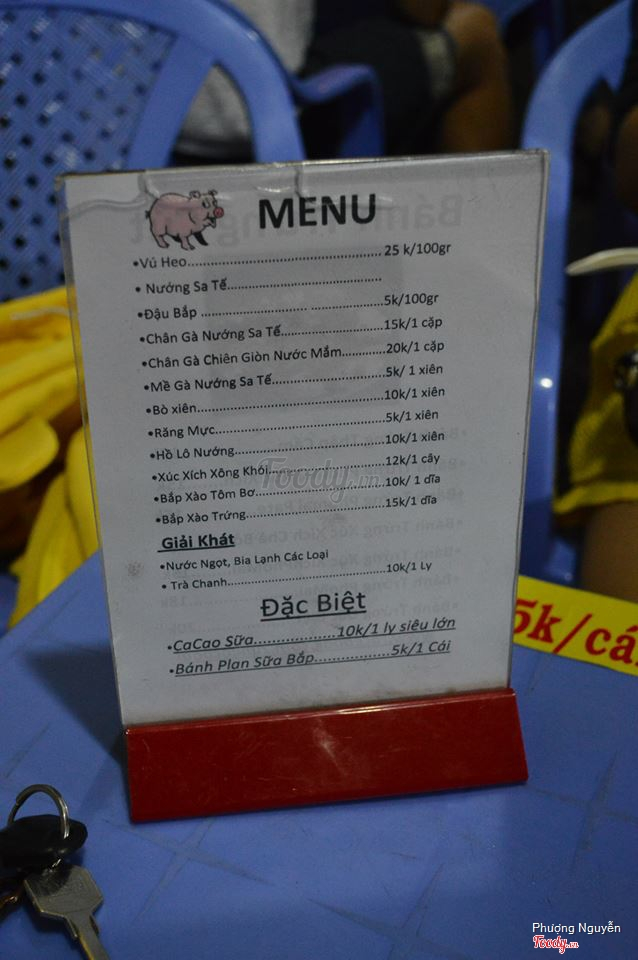 MENU
•Vú Heo................................................ 25 k/100gr
• Nướng Sa Tế.......................................
•Đậu Bắp ........................... ..................5k/100gr
•Chân Gà Nướng Sa Tế.........................15k/1 cặp
•Chân Gà Chiên Giòn Nước Mắm...........20k/1 cặp
•Mề Gà Nướng Sa Tế............................5k/ 1 xiên
•Bò xiên..............................................10k/1 xiên
•Răng Mực..........................................5k/1 xiên
•Hồ Lô Nướng.....................................10k/1 xiên
•Xúc Xích Xông Khói............................12k/1 cây
•Bắp Xào Tôm Bơ................................10k/ 1 dĩa
•Bắp Xào Trứng...................................15k/1 dĩa
Giải Khát
•Nước Ngọt, Bia Lạnh Các Loại
• Trà Chanh.......................................10k/1 Ly
Đặc Biệt
•CaCao Sữa..................10k/1 ly siêu lớn
•Bánh Plan Sữa Bắp................5k/1 Cái
5k/cá
Foody.vn
Phượng Nguyễn
Foody.vn